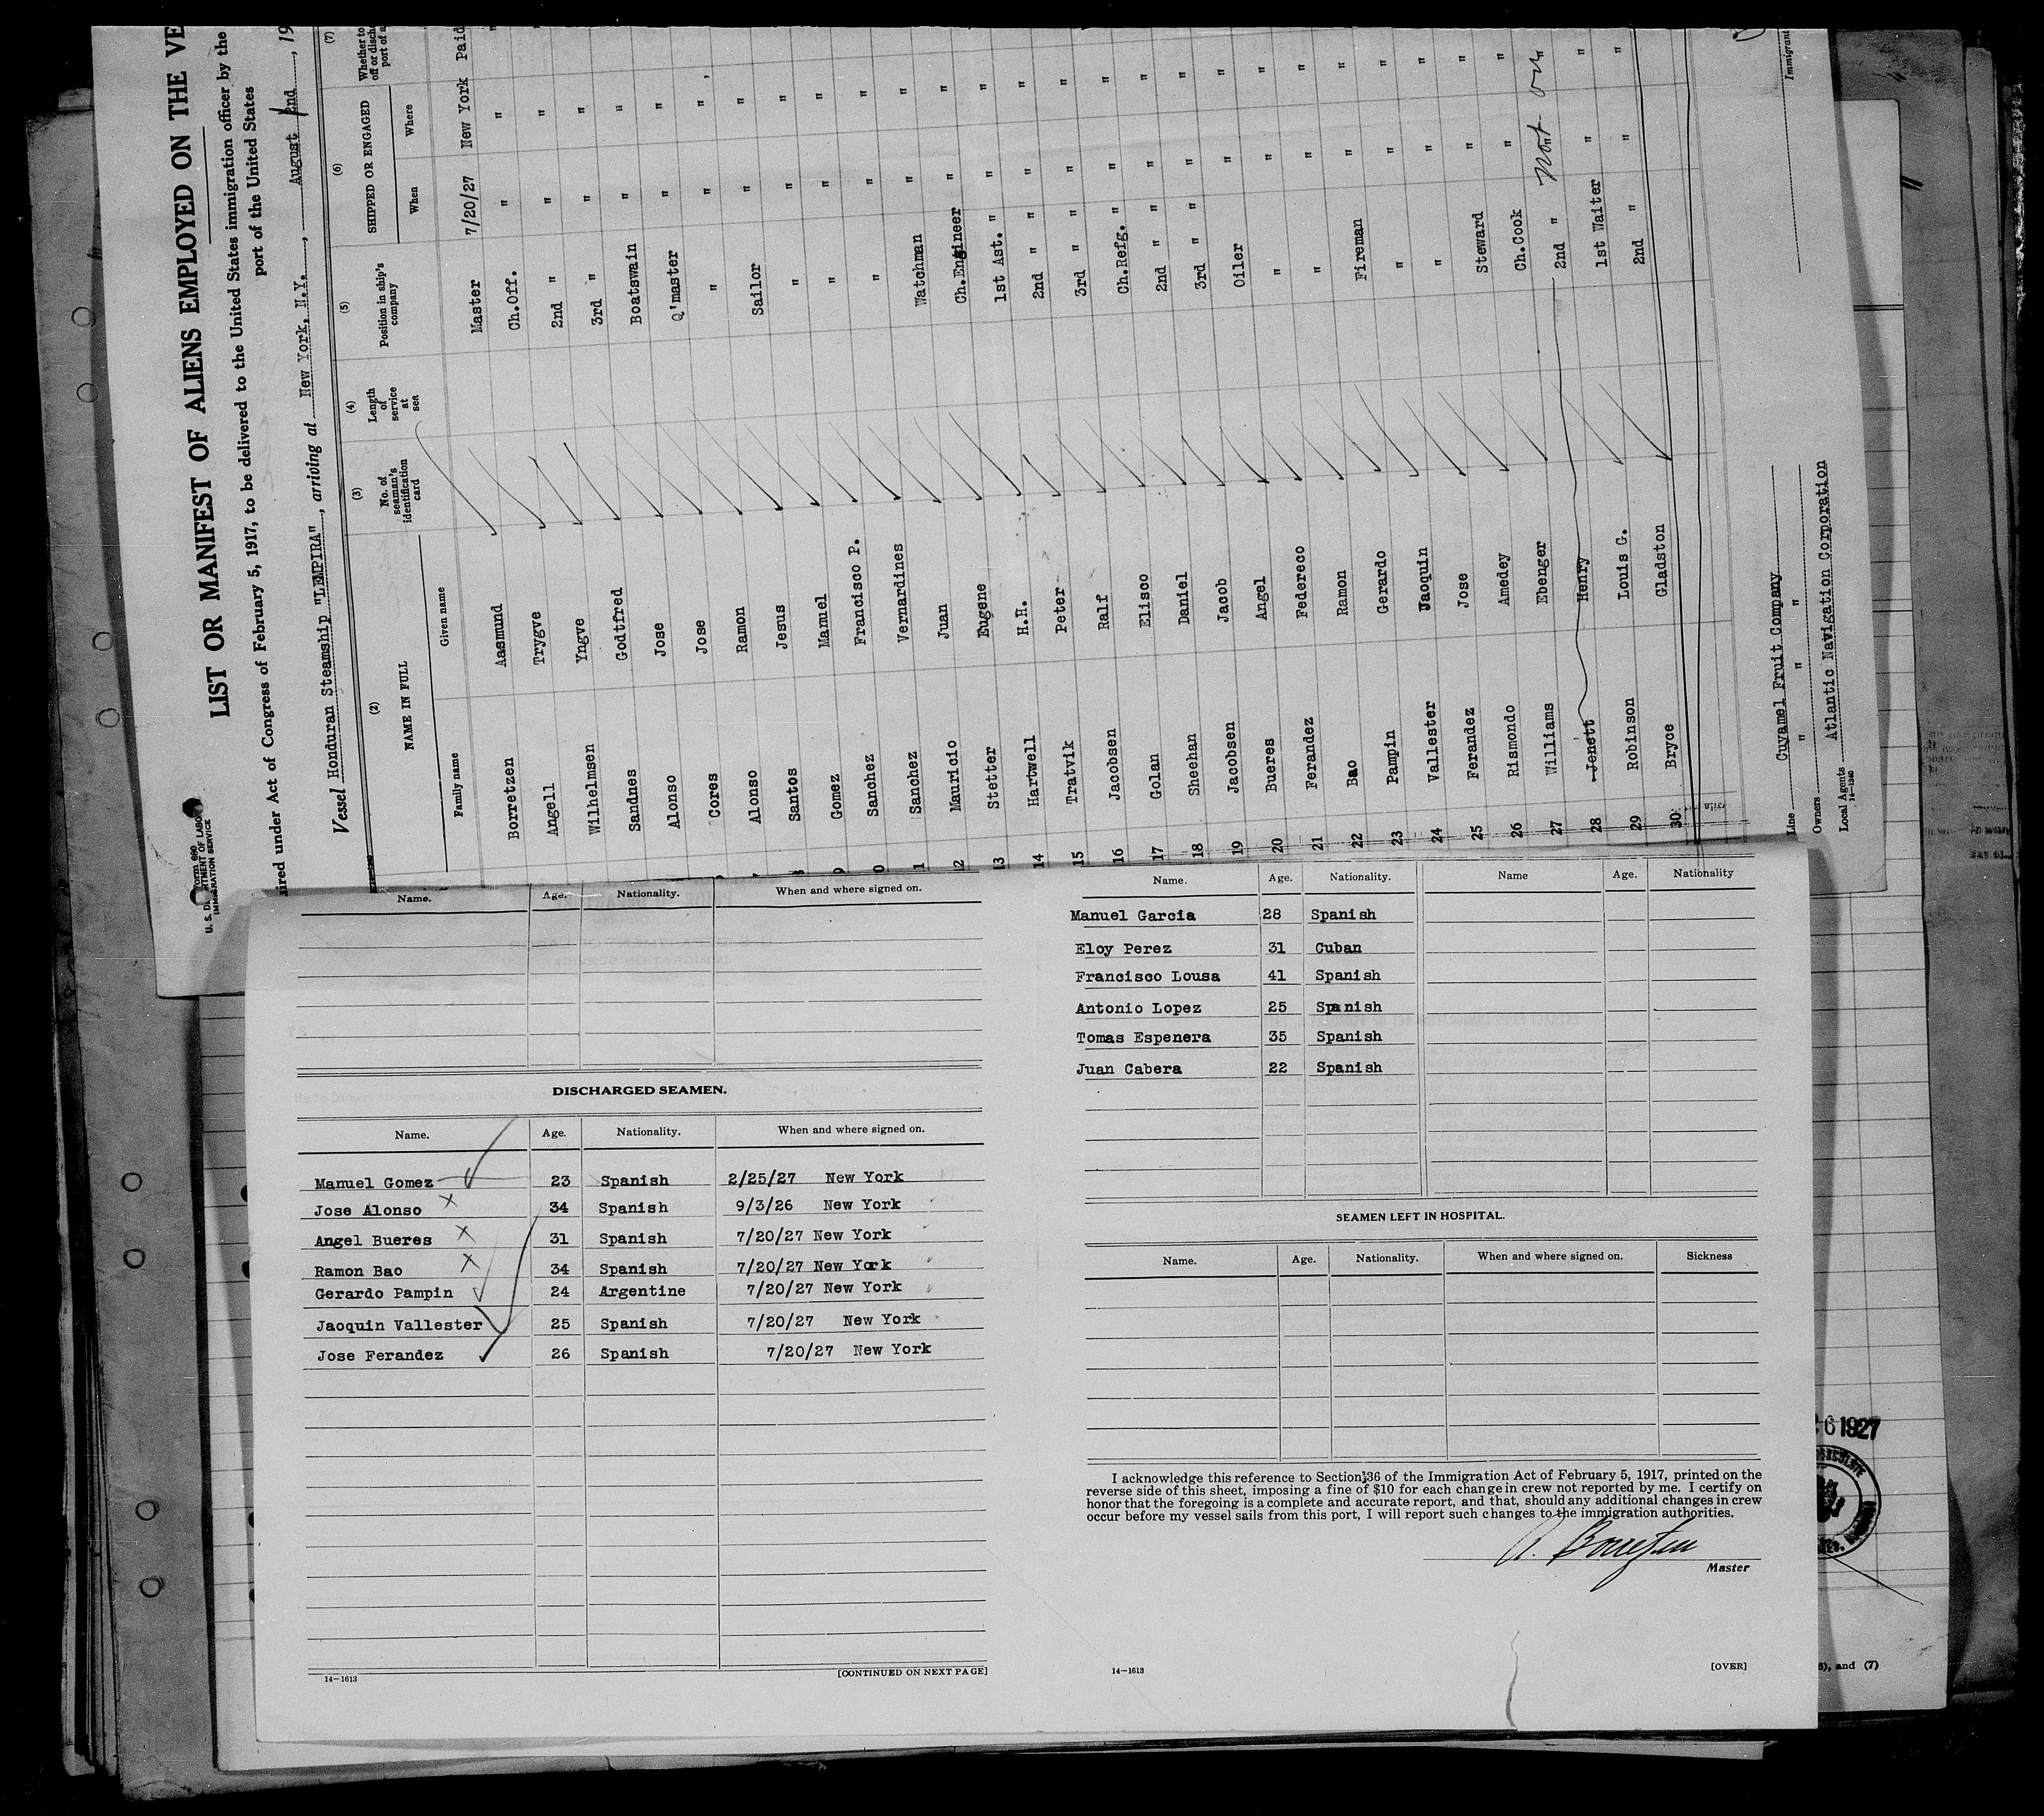 Form 680
U. S. DEPARTMENT OF LABOR
IMMIGRATION SERVICE
LIST OR MANIFEST OF ALIENS EMPLOYED ON THE VE
uired under Act of Congress of February 5, 1917, to be delivered to the United States immigration officer by the
port of the United States
Vessel Honduran Steamship "LEMPIRA", arriving at New York, N.Y., August 2nd, 19
(2) (3) (4) (5) (6) (7)
NAME IN FULL No. of seaman's identification card Length of service at sea Position in ship's company SHIPPED OR ENGAGED Whether to
off or discha
port of a
Family name Given name When Where
Borretzen Aasmund Master 7/20/27 New York Paid
Angell Trygve Ch.Off. " " "
Wilhelmsen Yngve 2nd " " "
Sandnes Godtfred 3rd " " "
Alonso Jose Boatswain " "
Cores Jose Q'master " "
Alonso Ramon " " " "
Santos Jesus Sailor " " "
Gomez Manuel " " " "
Sanchez Francisco P. " " " "
Sanchez Vernardines " " " "
Mauricio Juan Watchman " " "
13 Stetter Eugene Ch.Engineer " " "
14 Hartwell H.H. 1st Ast. " " " "
15 Tratvik Peter 2nd " " " " "
16 Jacobsen Ralf 3rd " " " " "
17 Golan Elisco Ch.Refg. " " " "
18 Sheehan Daniel 2nd " " " " "
19 Jacobsen Jacob 3rd " " " " "
20 Bueres Angel Oiler " " "
21 Ferandez Federeco " " " "
22 Bao Ramon " " " "
23 Pampin Gerardo Fireman " " "
24 Vallester Jaoquin " " " "
25 Ferandez Jose " " " "
26 Rismondo Amedey Steward " " "
27 Williams Ebenger Ch.Cook " " "
28 Jenett Henry 2nd " Not on
29 Robinson Louis G. 1st Waiter " " "
30 Bryce Gladston 2nd " " " "
Line Cuyamel Fruit Company
Owners " " "
Local Agents Atlantic Navigation Corporation
14-1240
Immigrant
Name. Age. Nationality. When and where signed on.
DISCHARGED SEAMEN.
Name. Age. Nationality. When and where signed on.
Manuel Gomez 23 Spanish 2/25/27 New York
Jose Alonso x 34 Spanish 9/3/26 New York
Angel Bueres x 31 Spanish 7/20/27 New York
Ramon Bao x 34 Spanish 7/20/27 New York
Gerardo Pampin 24 Argentine 7/20/27 New York
Jaoquin Vallester 25 Spanish 7/20/27 New York
Jose Ferandez 26 Spanish 7/20/27 New York
14-1613
[CONTINUED ON NEXT PAGE]
Name. Age. Nationality. Name Age. Nationality
Manuel Garcia 28 Spanish
Eloy Perez 31 Cuban
Francisco Lousa 41 Spanish
Antonio Lopez 25 Spanish
Tomas Espenera 35 Spanish
Juan Cabera 22 Spanish
SEAMEN LEFT IN HOSPITAL.
Name. Age. Nationality. When and where signed on. Sickness
I acknowledge this reference to Section 36 of the Immigration Act of February 5, 1917, printed on the
reverse side of this sheet, imposing a fine of $10 for each change in crew not reported by me. I certify on
honor that the foregoing is a complete and accurate report, and that, should any additional changes in crew
occur before my vessel sails from this port, I will report such changes to the immigration authorities.
A. Borretzen
Master
14-1613
[OVER]
6 1927
6), and (7)